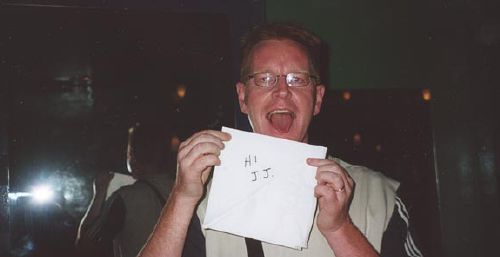 Hi
J.J.